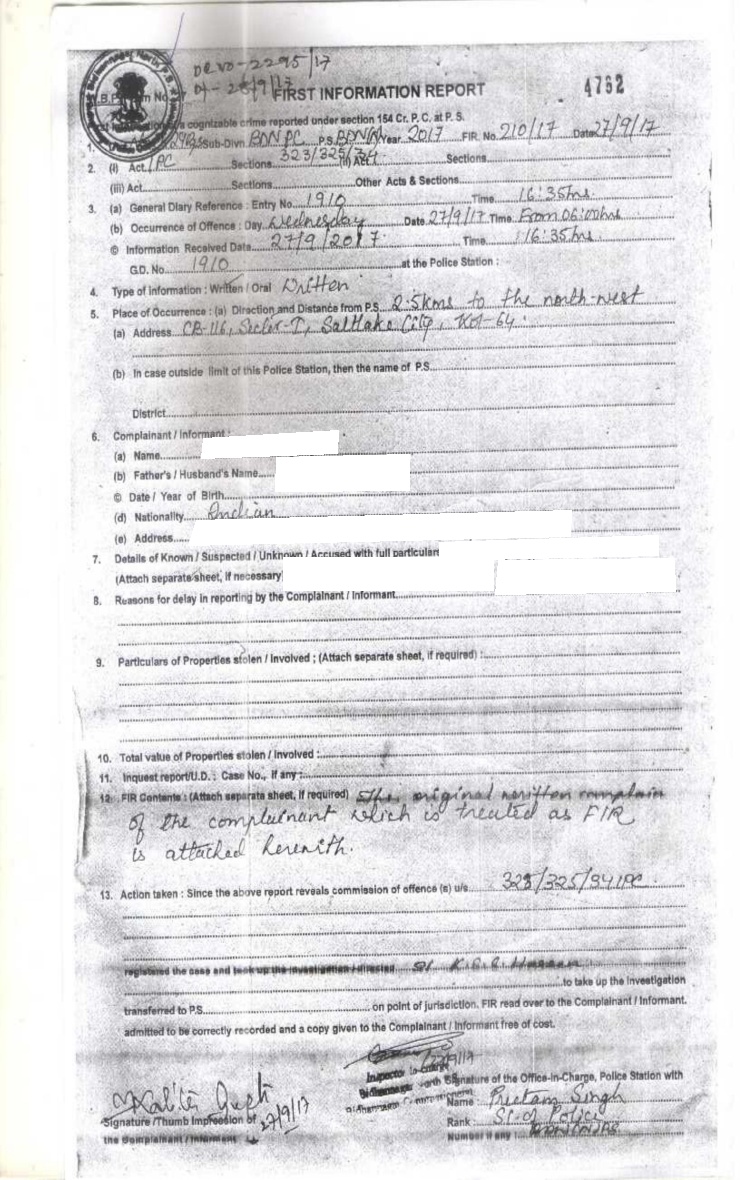 DRNO-2295/17
Dt-28/9/17
FIRST INFORMATION REPORT
4762
cognizable crime reported under section 154 Cr. P. C. at P. S.
1. Sub-Divn BDN PC P.S. BDN(N) Year 2017 FIR. No. 210/17 Date 27/9/17
2. (i) Act IPC Sections 323/325/34 (ii) Act Sections
(iii) Act Sections Other Acts & Sections
3. (a) General Diary Reference : Entry No. 1910 Time 16:35hrs
(b) Occurrence of Offence : Day Wednesday Date 27/9/17 Time From 06:00hrs
© Information Received Date 27/9/2017 Time 16:35hrs
G.D. No. 1910 at the Police Station :
4. Type of Information : Written / Oral Written
5. Place of Occurrence : (a) Direction and Distance from P.S. 2.5kms to the north-west
(a) Address CB-116, Sector-I, Saltlake City, Kol-64.
(b) In case outside limit of this Police Station, then the name of P.S.
District
6. Complainant / Informant :
(a) Name
(b) Father's / Husband's Name
© Date / Year of Birth
(d) Nationality Indian
(e) Address
7. Details of Known / Suspected / Unknown / Accused with full particular
(Attach separate sheet, if necessary
8. Reasons for delay in reporting by the Complainant / Informant
9. Particulars of Properties stolen / Involved ; (Attach separate sheet, if required) :
10. Total value of Properties stolen / Involved :
11. Inquest report/U.D. : Case No., if any :
12. FIR Contents : (Attach separate sheet, if required) The original written complain
of the complainant which is treated as FIR
is attached herewith.
13. Action taken : Since the above report reveals commission of offence (s) u/s 323/325/34 IPC
registered the case and took up the investigation / directed SI K.
to take up the investigation
transferred to P.S. on point of jurisdiction. FIR read over to the Complainant / Informant.
admitted to be correctly recorded and a copy given to the Complainant / Informant free of cost.
27/9/17
Inspector In-charge
Signature of the Office-in-Charge, Police Station with
Bidhannagar North
Bidhannagar Commissionerate
Name : Preetam Singh
Lalita Gupta
Signature /Thumb Impression of 27/9/17
Rank : SI of Police
the Complainant / Informant
Number if any :